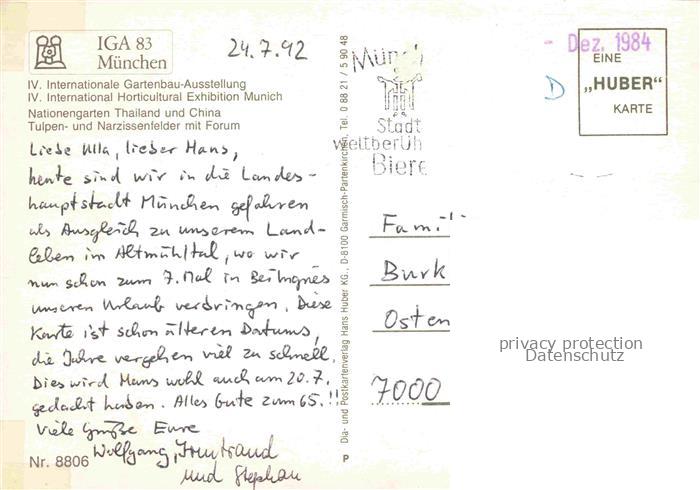 IGA 83
München
24.7.92
IV. Internationale Gartenbau-Ausstellung
IV. International Horticultural Exhibition Munich
Nationengarten Thailand und China
Tulpen- und Narzissenfelder mit Forum
Liebe Ulla, lieber Hans,
heute sind wir in die Landes-
hauptstadt München gefahren
als Ausgleich zu unserem Land-
leben im Altmühltal, wo wir
nun schon zum 7. Mal in Beilngries
unseren Urlaub verbringen. Diese
Karte ist schon älteren Datums,
die Jahre vergehen viel zu schnell.
Dies wird Hans wohl auch am 20.7.
gedacht haben. Alles Gute zum 65.!!
Viele Grüße Eure
Wolfgang, Irmtraud
und Stephan
Nr. 8806
Dia- und Postkartenverlag Hans Huber KG., D-8100 Garmisch-Partenkirchen, Tel. 0 88 21 / 5 90 48
P
Münch
Stadt
weltberüh
Biere
- Dez. 1984
D
EINE
„HUBER"
KARTE
Famil
Burk
Osten
7000
privacy protection
Datenschutz